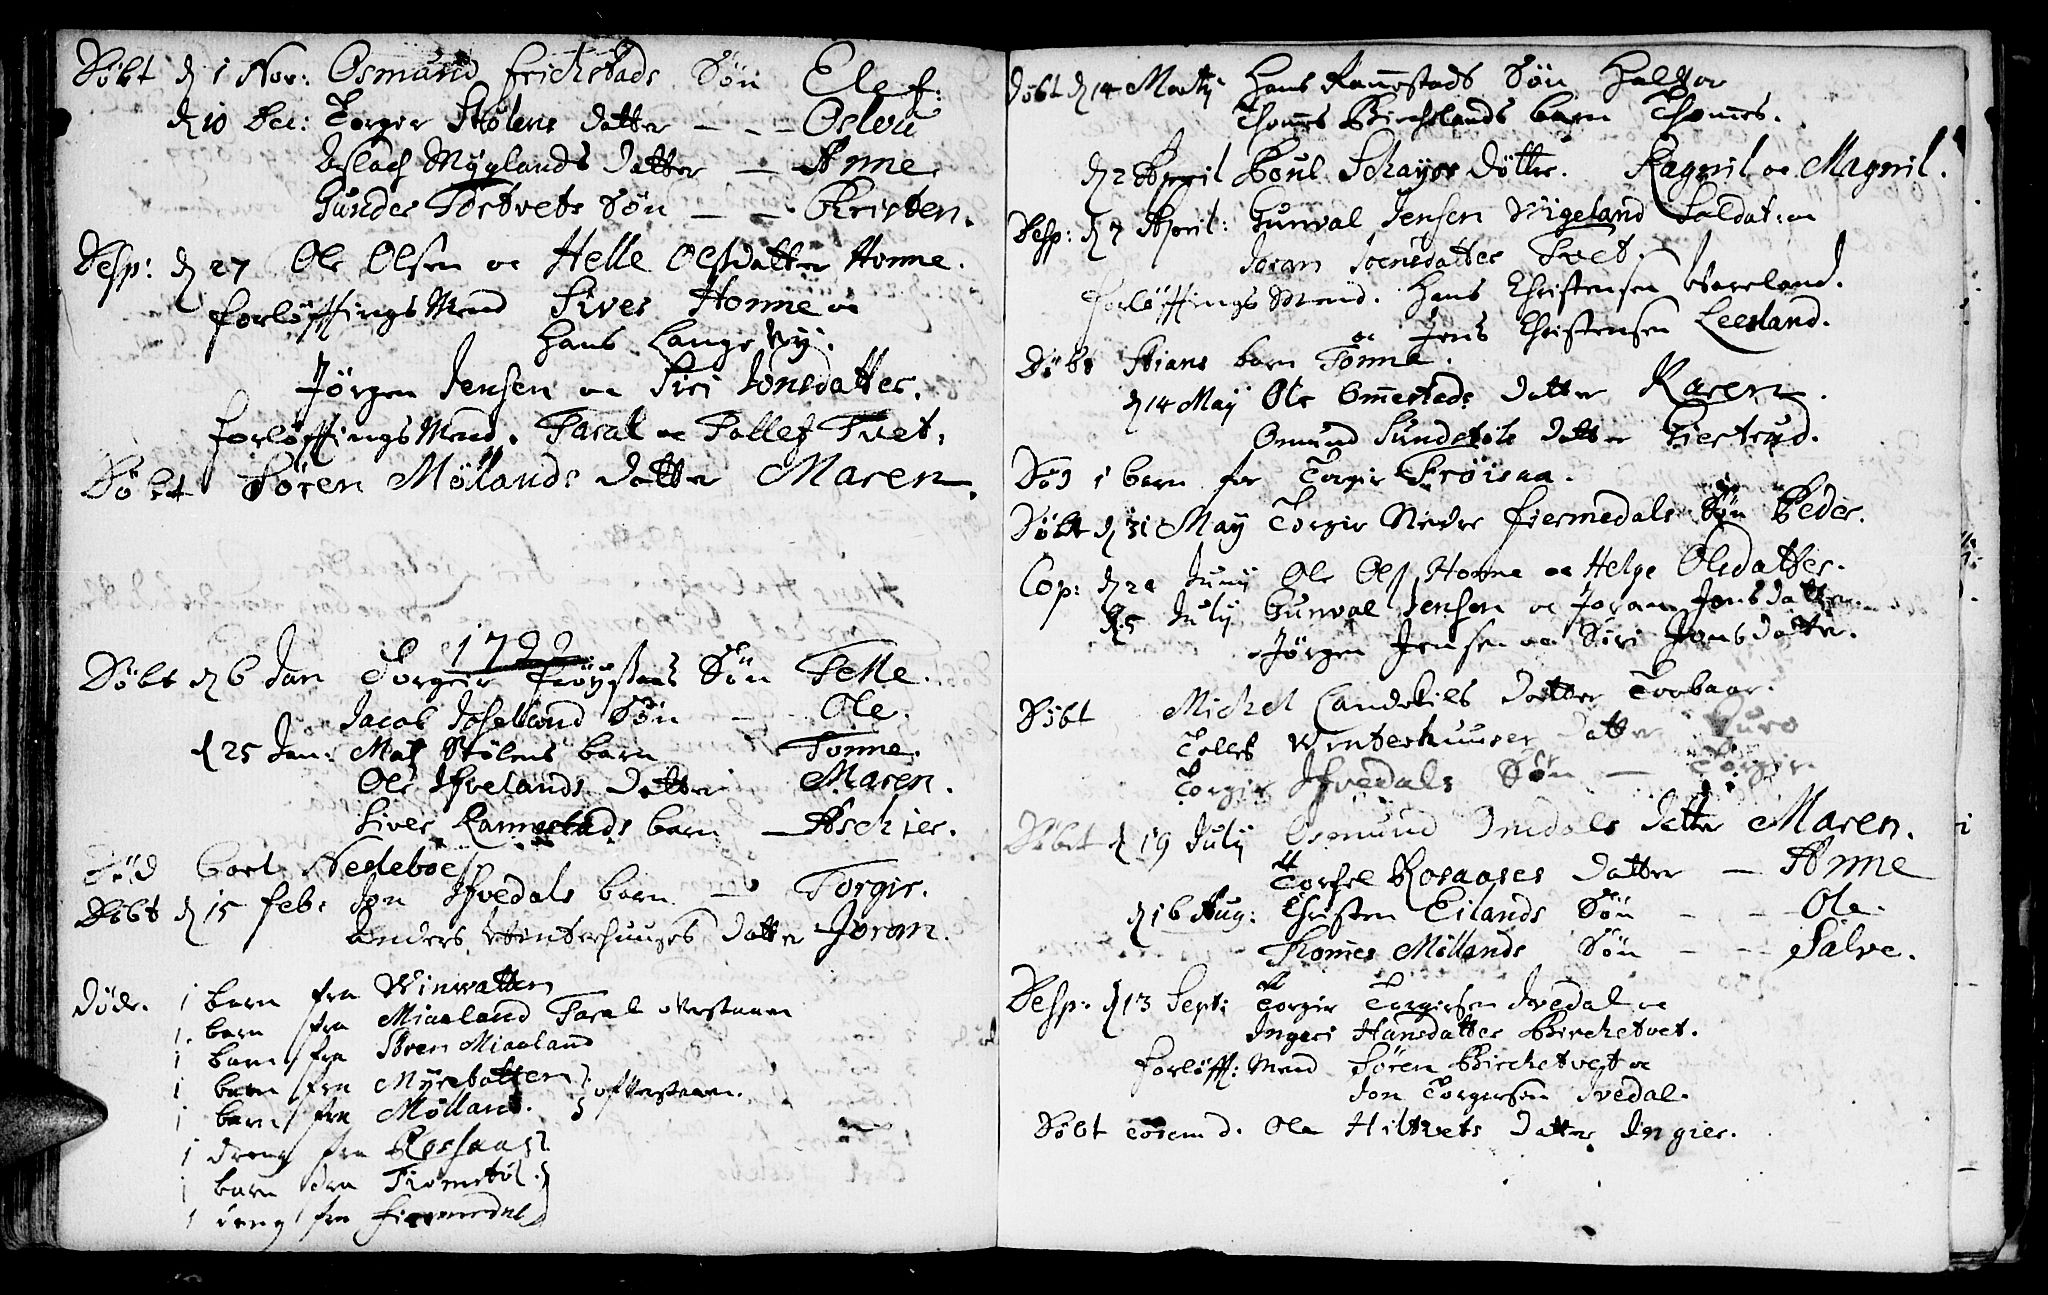 Døbt d 1 Nov: Osmund Erichstads Søn Elef:
d 10 Dec: Torgir Stølens datter - - - Oslou
Aslach Møglands datter - Anne
Gunder Tostvets Søn - - Kristen.
Desp: d 27 Ole Olsen oc Helle Olsdatter Honne.
forløffnings Mend Siver Honne oc
Hans Langevy.
Jørgen Jensen oc Siri Jonsdatter.
forløffnings Mend. Taral oc Tallef Tvet.
Døbt Søren Møllands datter Maren.
Døbt d 6 Jan Torgeir Søn Telle.
Jacob Søn - Ole.
d 25 Jan: Stølens barn Tonne.
Ole Ifvelands Datter Maren.
Siver Rannestads barn - Aschier.
Død Nedeboe
Døbt d 15 feb: Jon Ifvedals barn - Torgir.
Anders Winterhuuges datter Joran.
døde. 1 barn fra Winvatten
1. barn fra Miaaland Taral
1 barn fra Søren Miaaland
1 barn fra Myrebotten
1 barn fra Mølland.
1 dreng fra Rossaas
1 barn fra
1 dreng fra Fiermedal
Døbt d 14 Martij Hans Rannestads Søn Halvor
Thomes Birchelands barn Thomes.
d 2 April Poul Schayes døttre. Ragnil oc Magnil.
Desp: d 7 April: Gunval Jensen Wigeland Soldat: oc
Joran Joensdatter Tvet.
forløffnings Mend. Hans Christensen Vareland.
oc Jens Christensen Leerland.
Døbt Stians barn Tonne.
d 14 May Ole Ommestads datter Karen.
Omund Sundstøls datter Giertrud.
Død 1 barn for Torgir Frøisaa.
Døbt d 31 May Torgir Nedre Fiermedals Søn Peder.
Cop: d 2 Junij Ole Ols. Honne oc Helge Olsdatter.
d. 5 July Gunval Jensen oc Joran Jonsdatter
Jørgen Jensen oc Siri Jonsdatter.
Døbt Michel Landekils datter Torbaar.
Tellef Winterhuuses datter Guro
Torgir Ifvedals Søn - Torgir
Døbt d 19 July Osmund Omdals datter Maren.
Torkel Rosaases datter - Anne
d 16 Aug: Christen Eilands Søn - - Ole.
Thomes Møllands Søn - - Salve.
Desp: d 13 Sept: Torgir Torgirsen Ivedal oc
Ingeri Hansdatter Birchetvet.
forløff: Mend Søren Birchetvet oc
Jon Torgirsen Ivedal.
Døbt Ole Hiltvets datter Ingier.